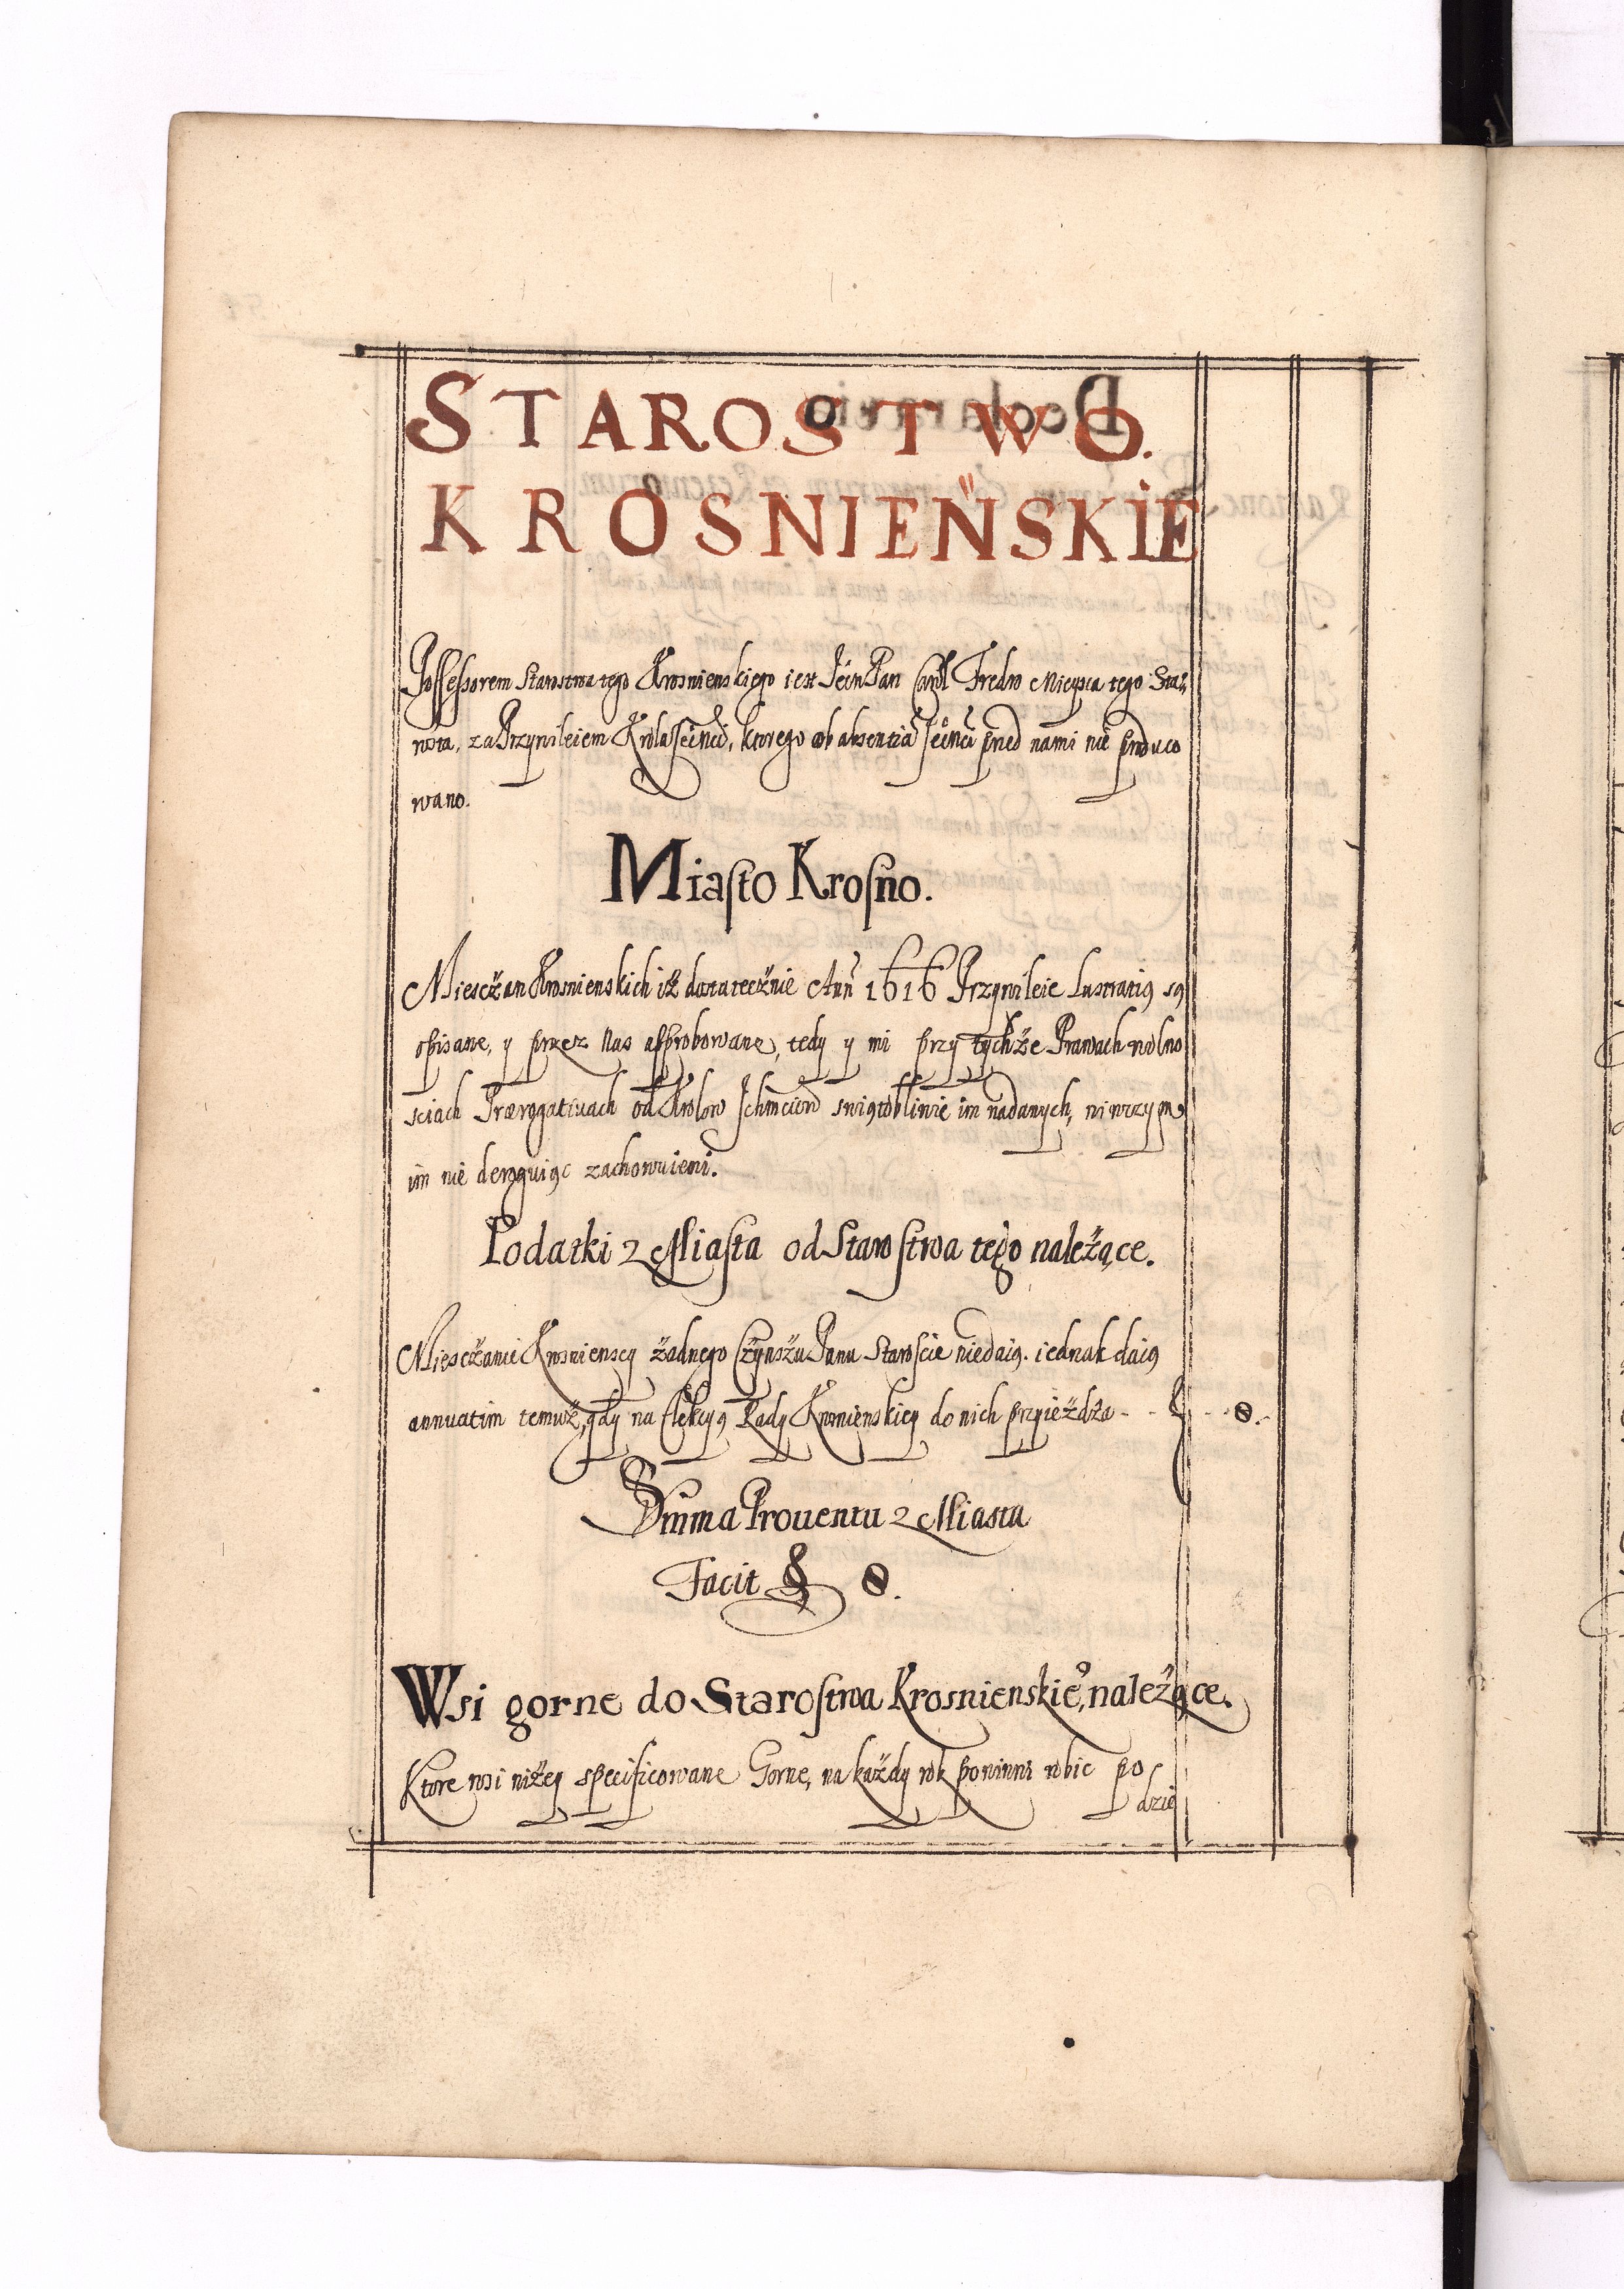 STAROSTWO.
KROSNIEŃSKIE
Possessorem Starostwa tego Krosnienskiego iest Jeo Pan Carol Fredro Mieysca tego Sta,
rosta, za Przywileiem Krola Jeo, ktorego ob absentia pred nami nie produco
wano.
Miasto Krosno.
Miesczan Krosnienskich iż dostatecżnie Ann 1616 Przywileie Lustratią są
opisane, y przez Nas approbowane, tedy y mi przy tychże Prawach wolno
sciach Prærogatiuach od Krolow Ichmciow swiątobliwie im nadanych, niwczym
im nie deroguiąc zachowuiemi.
Podatki z Miasta od Starostwa tego należące.
Miescżanie Krosnienscy żadnego Cżynszu Panu Staroscie niedaią. iednak daią
annuatim temuż, gdy na Elekcyą Rady Krosnienskiey do nich przyieżdża - - - 8.
Summa Prouentu z Miasta
Facit 8.
Wsi gorne do Starostwa Krosnienskie°, należące.
Ktore wsi niżey specificowane Gorne, na każdy rok powinni robic po
dzie